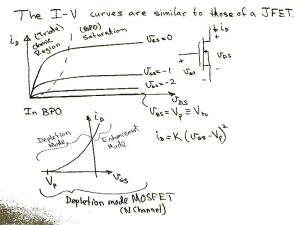 The I-V curves are similar to those of a JFET.
iD (Triode) Ohmic Region
(BPO) Saturation
vGS=0
vGS=-1
vGS=-2
vDS
vGS=Vp≡Vto
iD
vDS
vGS
+
-
+
-
In BPO
iD
Depletion Mode
Enhancement Mode
iD=K(vGS-Vp)²
Vp
vGS
Depletion mode MOSFET
(N Channel)